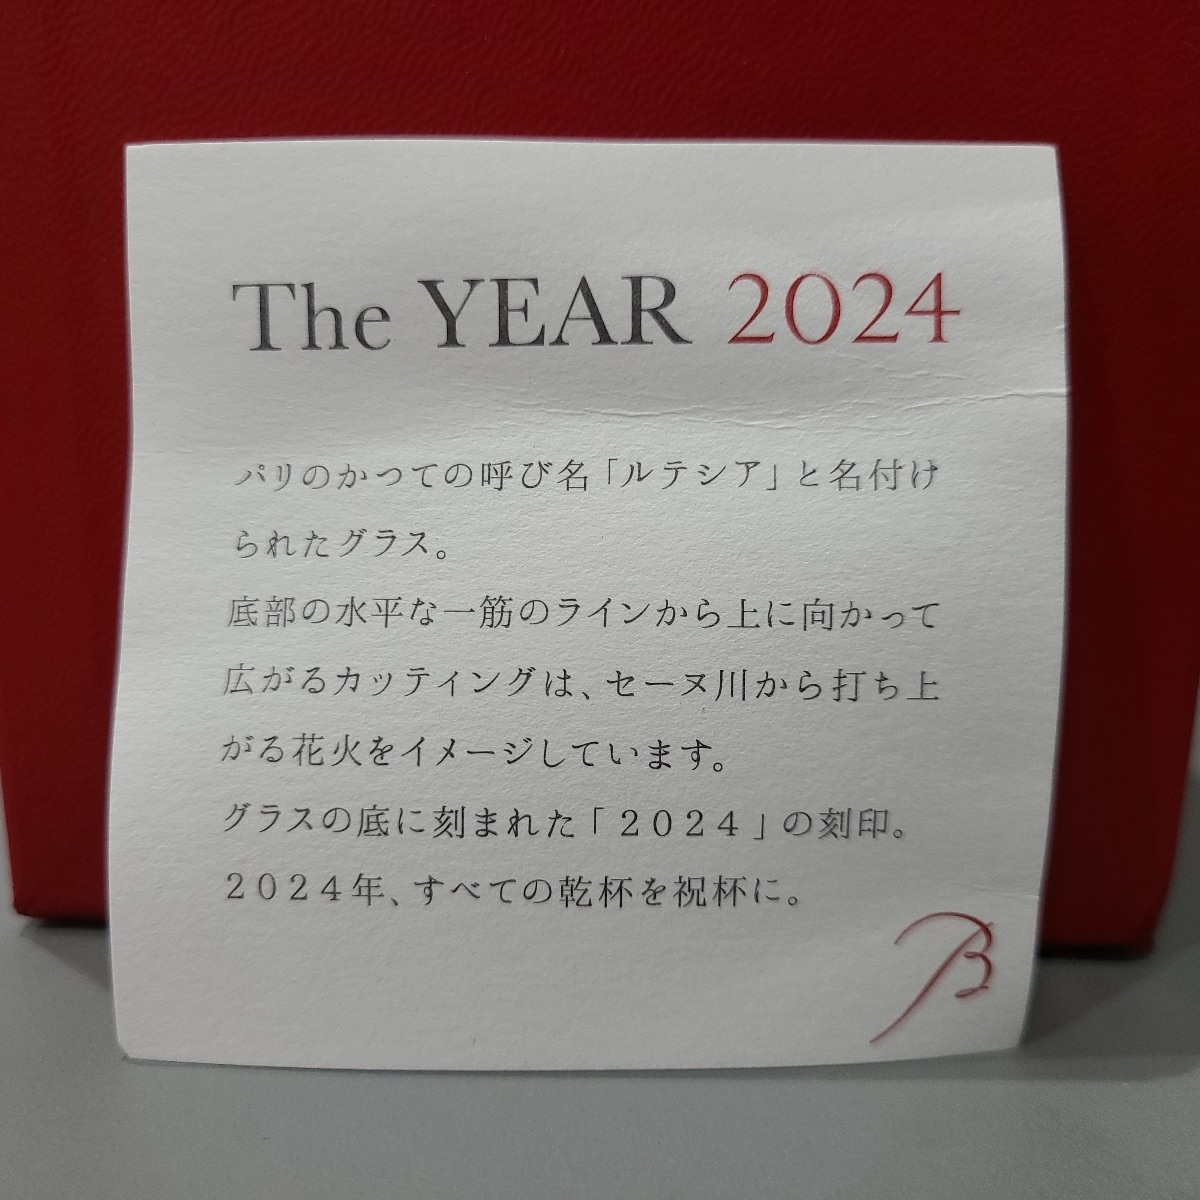 The YEAR 2024
パリのかつての呼び名「ルテシア」と名付け
られたグラス。
底部の水平な一筋のラインから上に向かって
広がるカッティングは、セーヌ川から打ち上
がる花火をイメージしています。
グラスの底に刻まれた「２０２４」の刻印。
２０２４年、すべての乾杯を祝杯に。
B